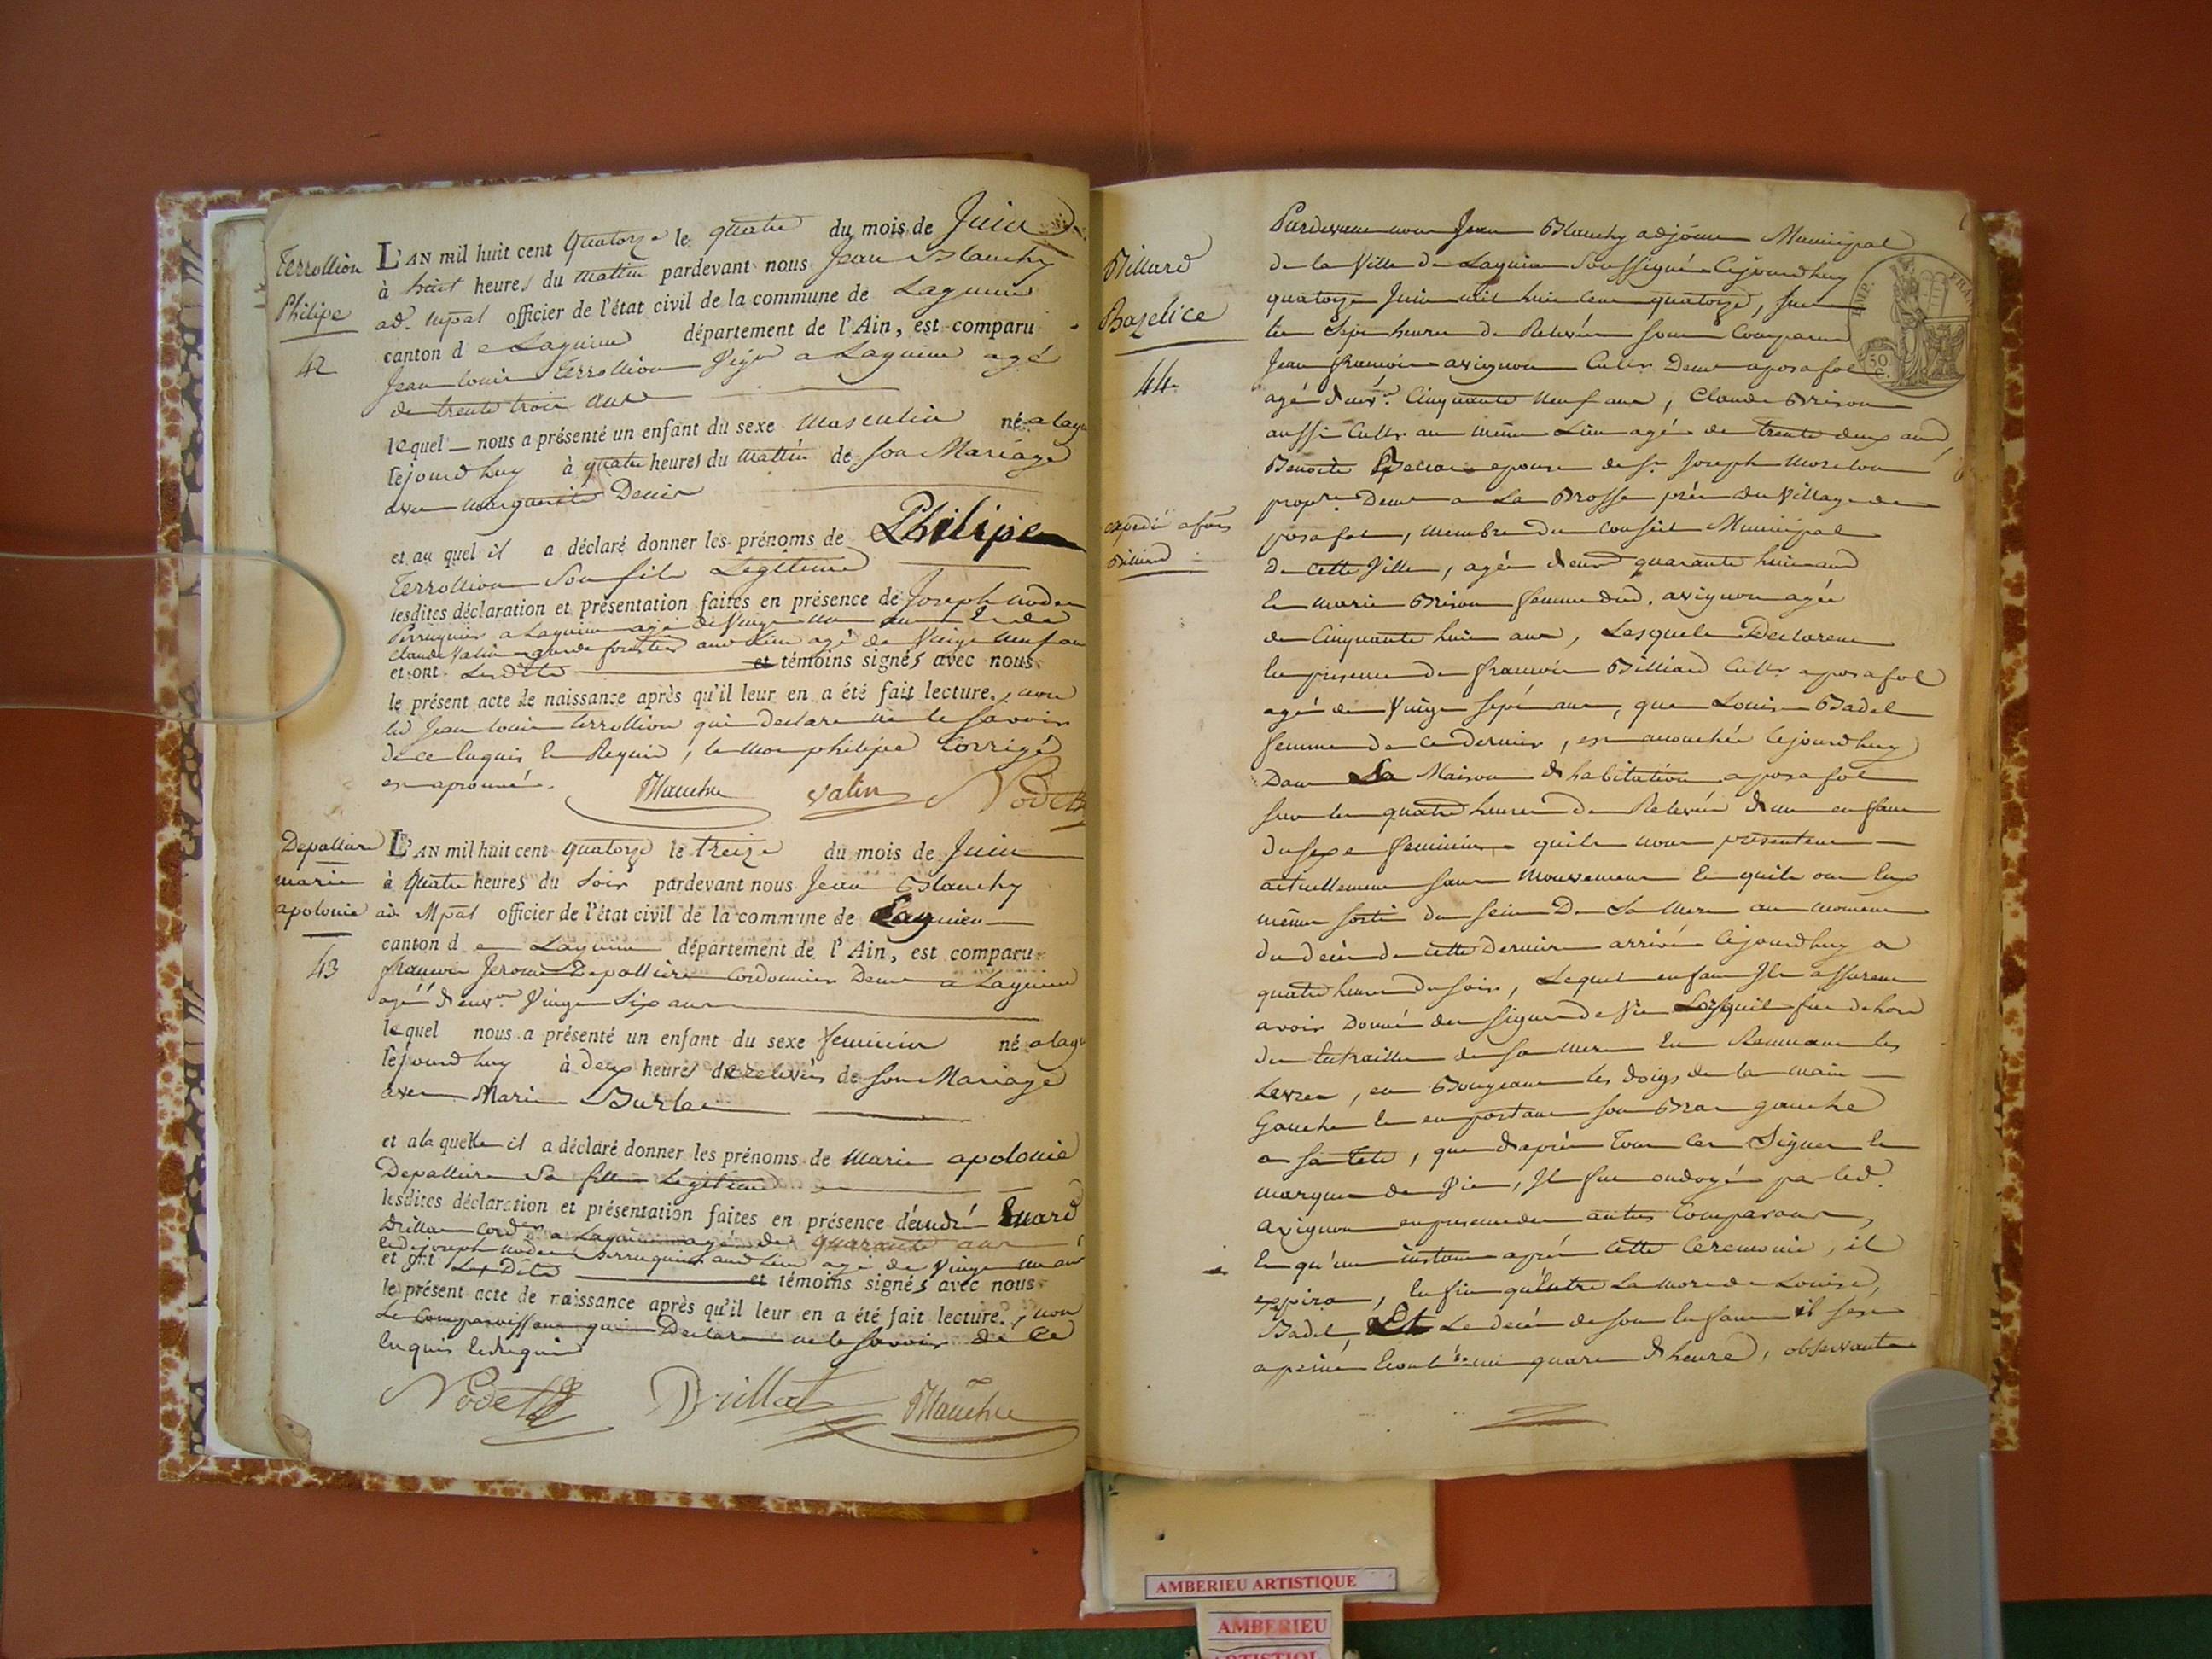 Terrollion
Philipe
42
L'AN mil huit cent quatorze le quatre du mois de Juin
à huit heures du mattin pardevant nous Jean Blanchy
ad. mpal officier de l'état civil de la commune de Lagnieu
canton de Lagnieu département de l'Ain, est comparu
Jean louis terrollion a Lagnieu agé
de trente trois ans
lequel nous a présenté un enfant du sexe masculin né a lag
cejourd huy à quatre heures du mattin de son Mariage
avec marguerite Denis
et au quel il a déclaré donner les prénoms de Philipe
Terrollion Son fils Legitime
lesdites déclaration et présentation faites en présence de Joseph nodet
Perruquier a Lagnieu agé de vingt un ans Et de
Claude Valin garde forestier aud Lieu agé de vingt neuf ans
et ont Lesdits et témoins signés avec nous
le présent acte de naissance après qu'il leur en a été fait lecture, non
led Jean louis terrollion qui declare ne le savoir
de ce Enquis et Requis, le mot philipe corrigé
est aprouvé.
Blanchy Valin Nodet
Depallier
marie
apolonie
43
L'AN mil huit cent quatorze le treize du mois de Juin
à quatre heures du soir pardevant nous Jean Blanchy
ad Mpal officier de l'état civil de la commune de Lagnieu
canton de Lagnieu département de l'Ain, est comparu
françois Jerome Depallier cordonnier Demt a Lagnieu
agé d'envon vingt Six ans
lequel nous a présenté un enfant du sexe feminin né a lag
cejourd huy à deux heures de relevée de son Mariage
avec Marie Burlet
et a la quelle il a déclaré donner les prénoms de marie apolonie
Depallier Sa fille Legitime
lesdites déclaration et présentation faites en présence d'andré
Drillat cordr a Lagnieu agé de quarante ans
et de joseph nodet perruquier aud Lieu agé de vingt un ans
et ont Les Dits et témoins signés avec nous
le présent acte de naissance après qu'il leur en a été fait lecture, non
Le comparoissant qui Declare ne le savoir de ce
Enquis et requis
Nodet Drillat Blanchy
Billiard
Bazelice
44
expedié a fois
Billiard
IMP. FRAN
50
C.
Pardevant nous Jean Blanchy adjoint Municipal
de la Ville de Lagnieu Soussigné Cejourdhuy
quatorze Juin mil huit cent quatorze, sur
les Sept heures de Relevée sont Comparus
Jean françois avignon Cultr Demt a posafol
agé d'envon Cinquante neuf ans, Claude Brison
aussi Cultr au même Lieu agé de trente deux ans
Benoite epouse de Sr Joseph Morelon
propre Demt a La Brosse près du Village de
posafol, membre du conseil Municipal
De cette Ville, agée d'envon quarante huit ans
Et marie Brison femme dud. avignon agée
de Cinquante huit ans, Lesquels Declarent
En presence de françois Billiard Cultr a posafol
agé de Vingt sept ans, que Louise Badel
femme de ce dernier, est accouchée Cejourdhuy
Dans Sa Maison d'habitation a posafol
sur les quatre heures de Relevée d'un enfant
du sexe feminin quils nous presentent
actuellement sans Mouvement Et quils ont Eux
même sorti du sein De Sa Mere au moment
du decès de cette Derniere arrivé Cejourdhuy a
quatre heures du soir, Lequel enfant Ils assurent
avoir Donné des signes de Vie Lorsquil fut dehors
des Entrailles de sa mere En Remuant les
Levres, en Bougeant les doigs de la main
Gauche Et en portant son Bras gauche
a sa tete, que d'après Tous ces Signes Et
marques de Vie, Il fut ondoyé par led.
avignon en presence des autres Comparants,
Et qu'un instant après cette Ceremonie, il
expira, Enfin qu'Entre La mort de Louise
Badel, Et Le decès de son Enfant il sest
a peine Ecoulé un quart d'heure, observant
AMBERIEU ARTISTIQUE
AMBERIEU
ARTISTIQU